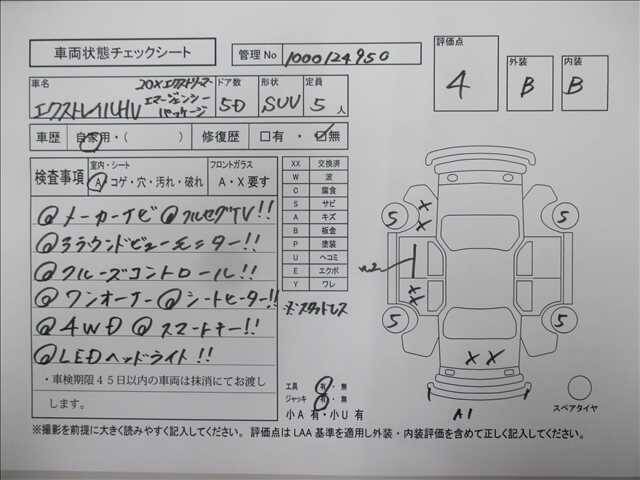 車両状態チェックシート
管理No 1000124950
評価点
4
外装
B
内装
B
車名
エクストレイルHV
20Xエクストリーマー
エマージェンシー
パッケージ
ドア数
5D
形状
SUV
定員
5人
車歴 自家用・( ) 修復歴 □有・☑無
検査事項
室内・シート
A・コゲ・穴・汚れ・破れ
フロントガラス
A・X要す
@メーカーナビ @フルセグTV!!
@アラウンドビューモニター!!
@クルーズコントロール!!
@ワンオーナー @シートヒーター!!
@4WD @スマートキー!!
@LEDヘッドライト!!
・車検期限45日以内の車両は抹消にてお渡し
します。
XX 交換済
W 波
C 腐食
S サビ
A キズ
B 板金
P 塗装
U ヘコミ
E エクボ
Y ワレ
※スタッドレス
工具 有・無
ジャッキ 有・無
小A 有・小U 有
5
××
5
××
5
5
××
A1
スペアタイヤ
※撮影を前提に大きく読みやすく記入してください。 評価点は LAA 基準を適用し外装・内装評価を含めて正しく記入してください。